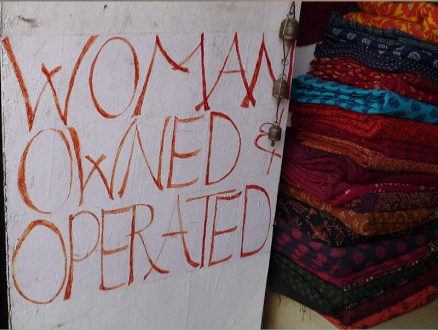 WOMAN
OWNED &
OPERATED